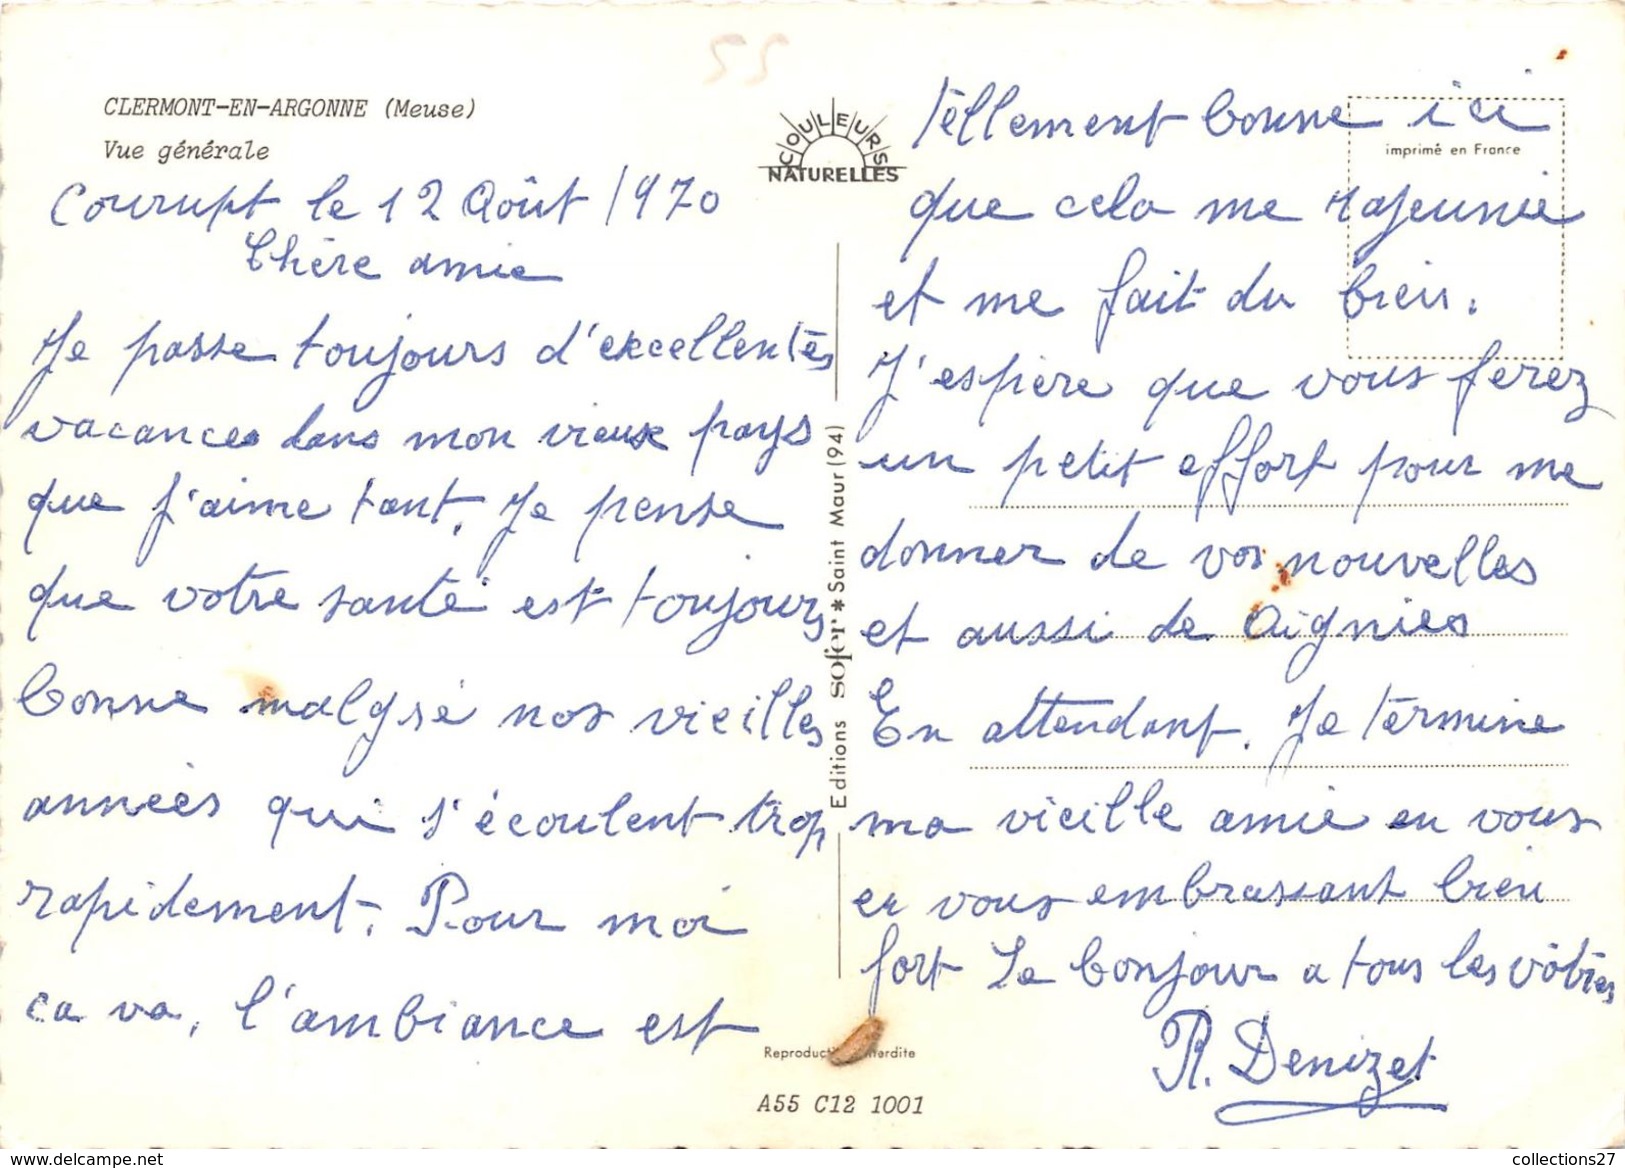 55
CLERMONT-EN-ARGONNE (Meuse)
Vue générale
COULEURS
NATURELLES
imprimé en France
Courupt le 12 Août 1970
Chère amie
Je passe toujours d'excellentes
vacances dans mon vieux pays
que j'aime tant. Je pense
que votre santé est toujours
bonne malgré nos vieilles
années qui s'écoulent trop
rapidement. Pour moi
ca va, l'ambiance est
tellement bonne ici
que cela me rajeunie
et me fait du bien.
J'espère que vous ferez
un petit effort pour me
donner de vos nouvelles
et aussi de Aignies
En attendant. Je termine
ma vieille amie en vous
en vous embrassant bien
fort Le bonjour a tous les vôtres
R. Denizet
Editions sofer * Saint Maur (94)
Reproduction interdite
A55 C12 1001
collections27